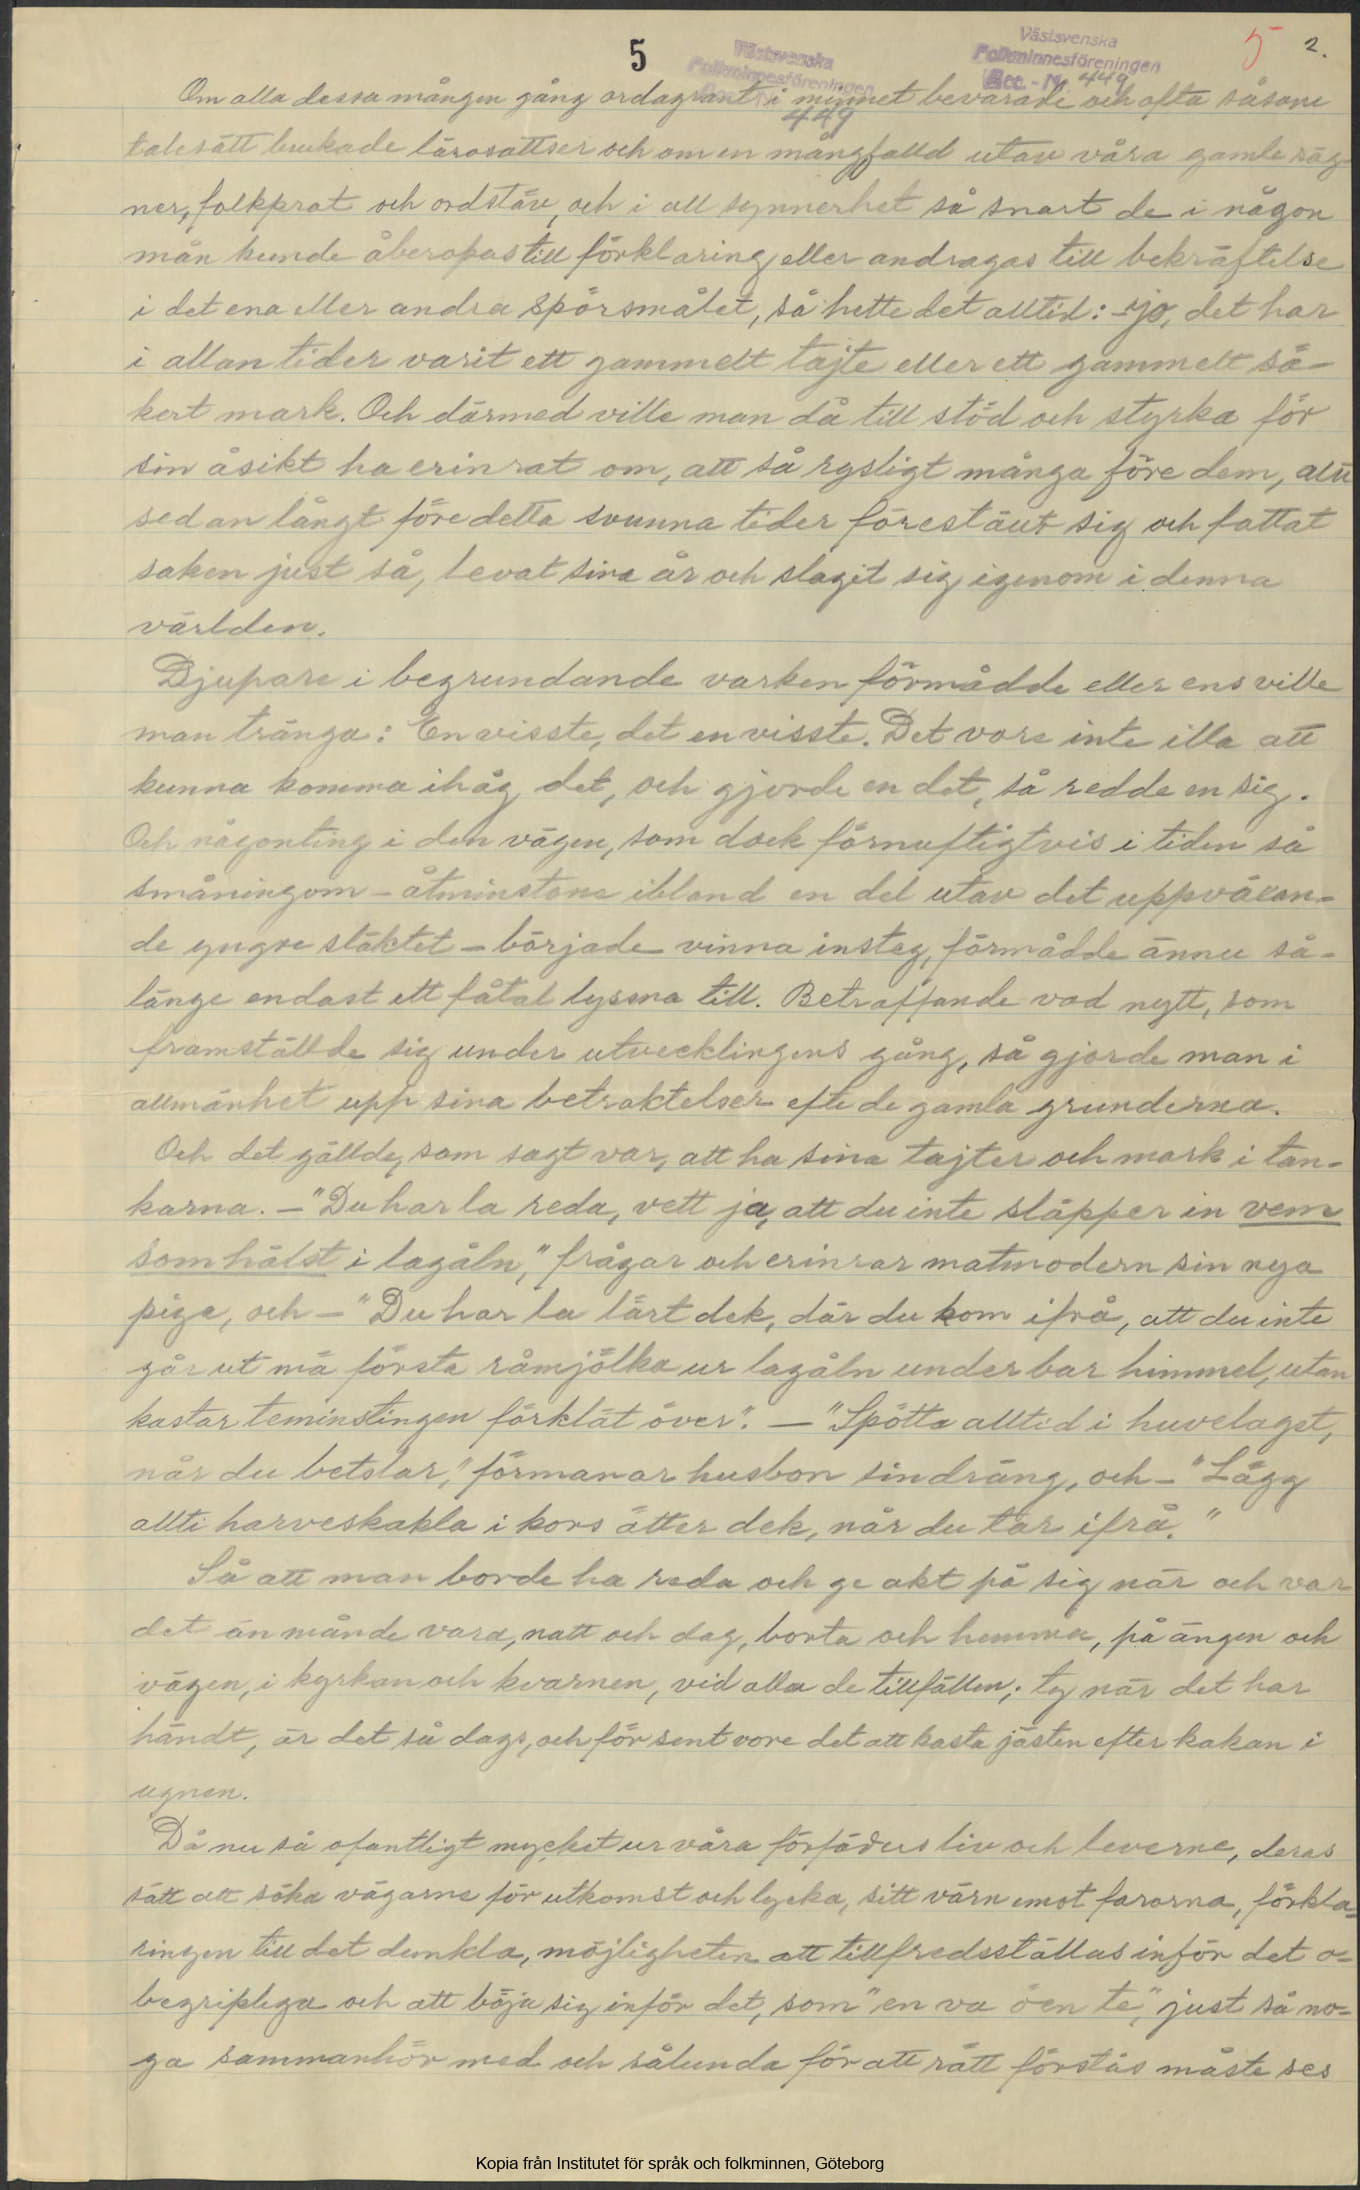 5
Västsvenska
Folkminnesföreningen
449
Västsvenska
Folkminnesföreningen
Acc. - Nr. 449
5 2.
Om alla dessa mången gång ordagrant i minnet bevarade och ofta såsom
talesätt brukade lärosattser och om en mångfalld utav våra gamla säg-
ner, folkprat och ordstäv, och i all synnerhet så snart de i någon
mån kunde åberopas till förklaring eller andragas till bekräftelse
i det ena eller andra spörsmålet, så hette det alltid: - jo, det har
i allan tider varit ett gammelt tajte eller ett gammelt sä-
kert mark. Och därmed ville man då till stöd och styrka för
sin åsikt ha erinrat om, att så rysligt många före dem, allt
sedan långt före detta svunna tider förestäut sig och fattat
saken just så, levat sina år och slagit sig igenom i denna
världen.
Djupare i begrundande varken förmådde eller ens ville
man tränga: En visste, det en visste. Det vore inte illa att
kunna komma ihåg det, och gjorde en det, så redde en sig.
Och någonting i den vägen, som dock förnuftigtvis i tiden så
småningom - åtminstone ibland en del utav det uppväxan-
de yngre släktet - började vinna insteg, förmådde ännu så-
länge endast ett fåtal lyssna till. Beträffande vad nytt, som
framställde sig under utvecklingens gång, så gjorde man i
allmänhet upp sina betraktelser efte de gamla grunderna.
Och det gällde, som sagt var, att ha sina tajter och mark i tan-
karna. - "Du har la reda, vett ja, att du inte släpper in vem
som hälst i lagåln," frågar och erinrar matmodern sin nya
piga, och - "Du har la lärt dek, där du kom ifrå, att du inte
går ut mä första råmjölka ur lagåln under bar himmel, utan
kastar teminstingen förklät över". - "Spötta alltid i huvelaget,
når du betslar," förmanar husbon sin dräng, och - "Lägg
allti harveskakla i kors ätter dek, når du tar ifrå."
Så att man borde ha reda och ge akt på sig när och var
det än månde vara, natt och dag, borta och hemma, på ängen och
vägen, i kyrkan och kvarnen, vid alla de tillfällen; ty när det har
händt, är det så dags, och för sent vore det att kasta jästen efter kakan i
ugnen.
Då nu så ofantligt mycket ur våra förfäders liv och leverne, deras
sätt att söka vägarne för utkomst och lycka, sitt värn emot farorna, förkla-
ringen till det dunkla, möjligheten att tillfredsställas inför det o-
begripliga och att böja sig inför det, som "en va öen te," just så no-
ga sammanhör med och sålunda för att rätt förstås måste ses
Kopia från Institutet för språk och folkminnen, Göteborg